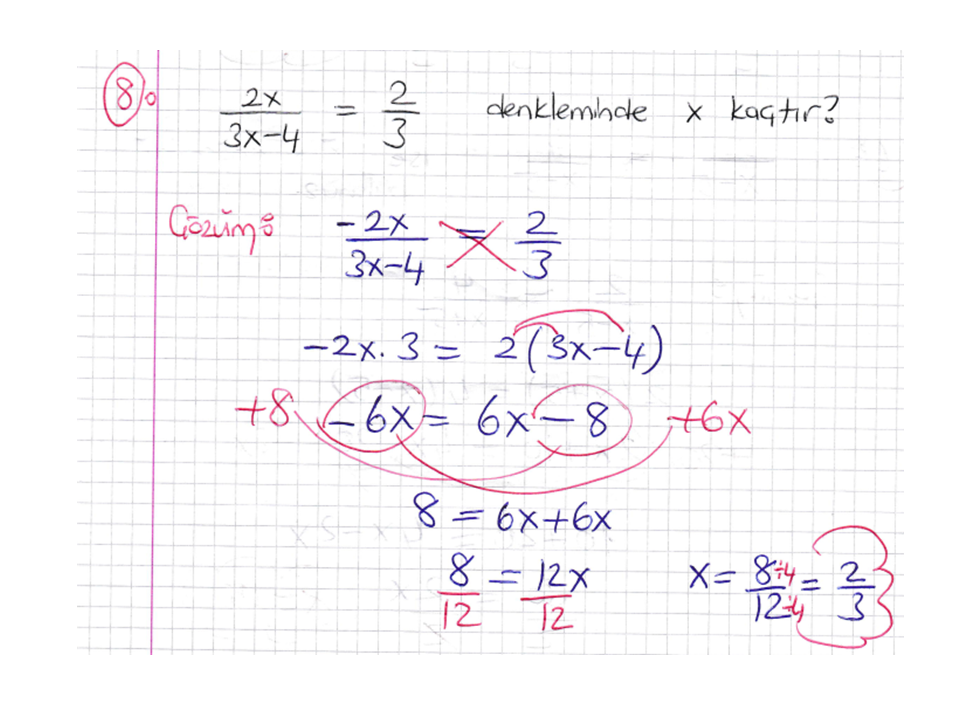 8) 2x/3x-4 = 2/3 denkleminde x kaçtır?
Çözüm: -2x/3x-4 = 2/3
-2x.3 = 2(3x-4)
+8 -6x = 6x-8 +6x
8 = 6x+6x
8/12 = 12x/12 x = 8÷4/12÷4 = 2/3